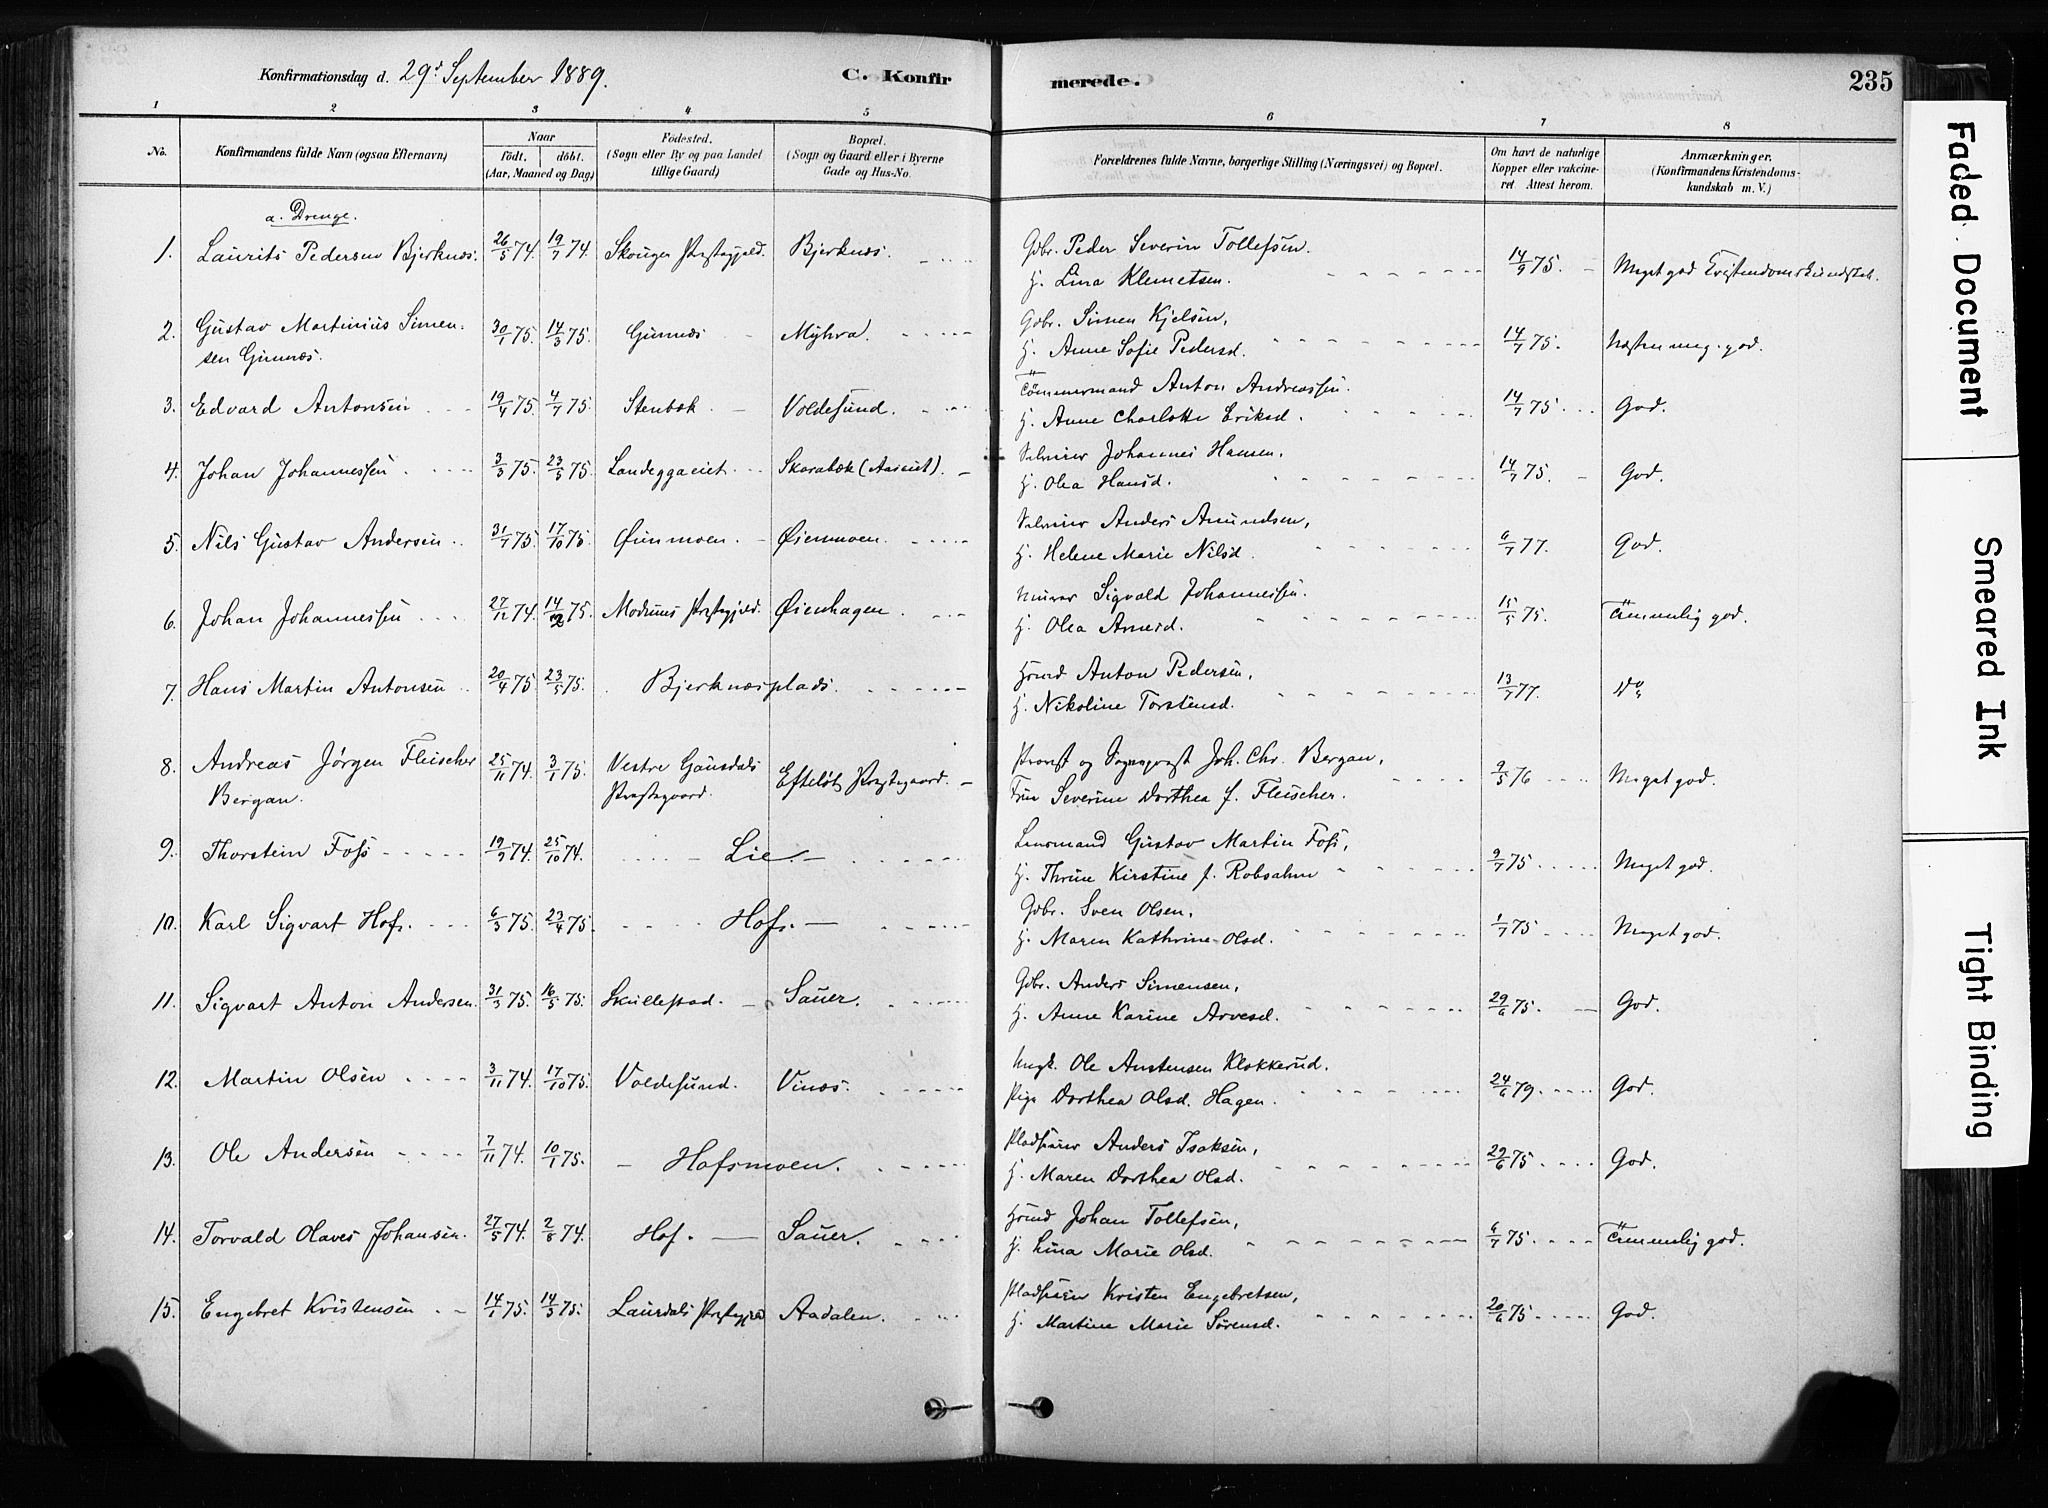 Konfirmationsdag d. 29d September 1889.
C. Konfirmerede.
235
1 2 3 4 5 6 7 8
No.
Konfirmandens fulde Navn (ogsaa Efternavn)
Naar
födt. döbt.
(Aar, Maaned og Dag)
Födested.
(Sogn eller By og paa Landet
tillige Gaard)
Bopæl.
(Sogn og Gaard eller i Byerne
Gade og Hus-No.
Forældrenes fulde Navne, borgerlige Stilling (Næringsvei) og Bopæl.
Om havt de naturlige
Kopper eller vakcine-
ret Attest herom.
Anmærkninger.
(Konfirmandens Kristendoms-
kundskab m. V.)
a. Drenge.
1. Laurits Pedersen Bjerknæs. 26/5 74. 19/7 74. Skouger Præstegjeld. Bjerknæs. Gdbr. Peder Severin Tollefsen. 14/9 75. Meget god Kristendomskundskab.
H. Lina Klemetsen.
2. Gustav Martinius Simen- 30/1 75. 14/3 75. Gunnæs Myhra. Gdbr. Simen Kjelsen, 14/7 75. Næsten meg. god.
sen Gunnæs. H. Anne Sofie Pedersd.
3. Edvard Antonsen 19/4 75. 4/7 75. Stenbæk Voldesund. Tömmermand Anton Andreassen. 14/7 75. God.
H. Anne Charlotte Eriksd.
4. Johan Johannessen 3/3 75. 23/5 75. Landeggaeiet Skarabæk (Aaseiet). Selveier Johannes Hansen, 14/7 75. God.
H. Olea Hansd.
5. Nils Gustav Andersen 31/7 75. 17/10 75. Øienmoen Øienmoen. Selveier Anders Amundsen, 6/7 77. God.
H. Helene Marie Nilsd
6. Johan Johannessen 27/12 74. 14/2 75. Modums Præstegjeld. Øienhagen. Murer Sigvald Johannessen. 15/5 75. Temmelig god.
H. Olea Arnesd.
7. Hans Martin Antonsen 20/4 75. 23/5 75. Bjerknæsplads. Husmd Anton Pedersen, 13/7 77. Do
H. Nikoline Torstensd.
8. Andreas Jørgen Fleischer 25/11 74. 3/1 75. Vestre Gausdals Efteløts Præstegaard. Provst og Sognepræst Joh. Chr. Bergan, 9/5 76 Meget god.
Bergan. Præstegaard. Frue Severine Dorthea f. Fleischer.
9. Thorstein Foss 19/9 74. 25/10 74. Lie Lensmand Gustav Martin Foss, 9/7 75. Meget god.
H. Thrine Kirstine f. Robsahm
10. Karl Sigvart Hofs. 6/3 75. 23/4 75. Hofs. Gdbr. Sven Olsen. 1/7 75 Meget god.
H. Maren Kathrine Olsd.
11. Sigvart Anton Andersen. 31/3 75. 16/5 75. Skullestad Sauer. Gdbr. Anders Simensen, 29/6 75. God.
H. Anne Karine Arvesd.
12. Martin Olsen 3/11 74. 17/10 75. Voldesund. Vinæs. Ungk. Ole Austensen Klokkerud. 24/6 79. God.
Pige Dorthea Olsd. Hagen.
13. Ole Andersen 7/11 74. 10/1 75. Hofsmoen. Pladsfører Anders Isaksen, 29/6 75. God.
H. Maren Dorthea Olsd.
14. Torvald Olaves Johansen. 27/5 74. 2/8 74. Hof. Sauer. Husmd Johan Tollefsen, 6/7 75. Temmelig god.
H. Lina Marie Olsd.
15. Engebret Kristensen 14/1 75. 14/3 75. Laurdals Præstegjeld Aadalen. Pladsfører Kristen Engebretsen, 20/6 75. God.
H. Martine Marie Sørensd.
Faded Document
Smeared Ink
Tight Binding